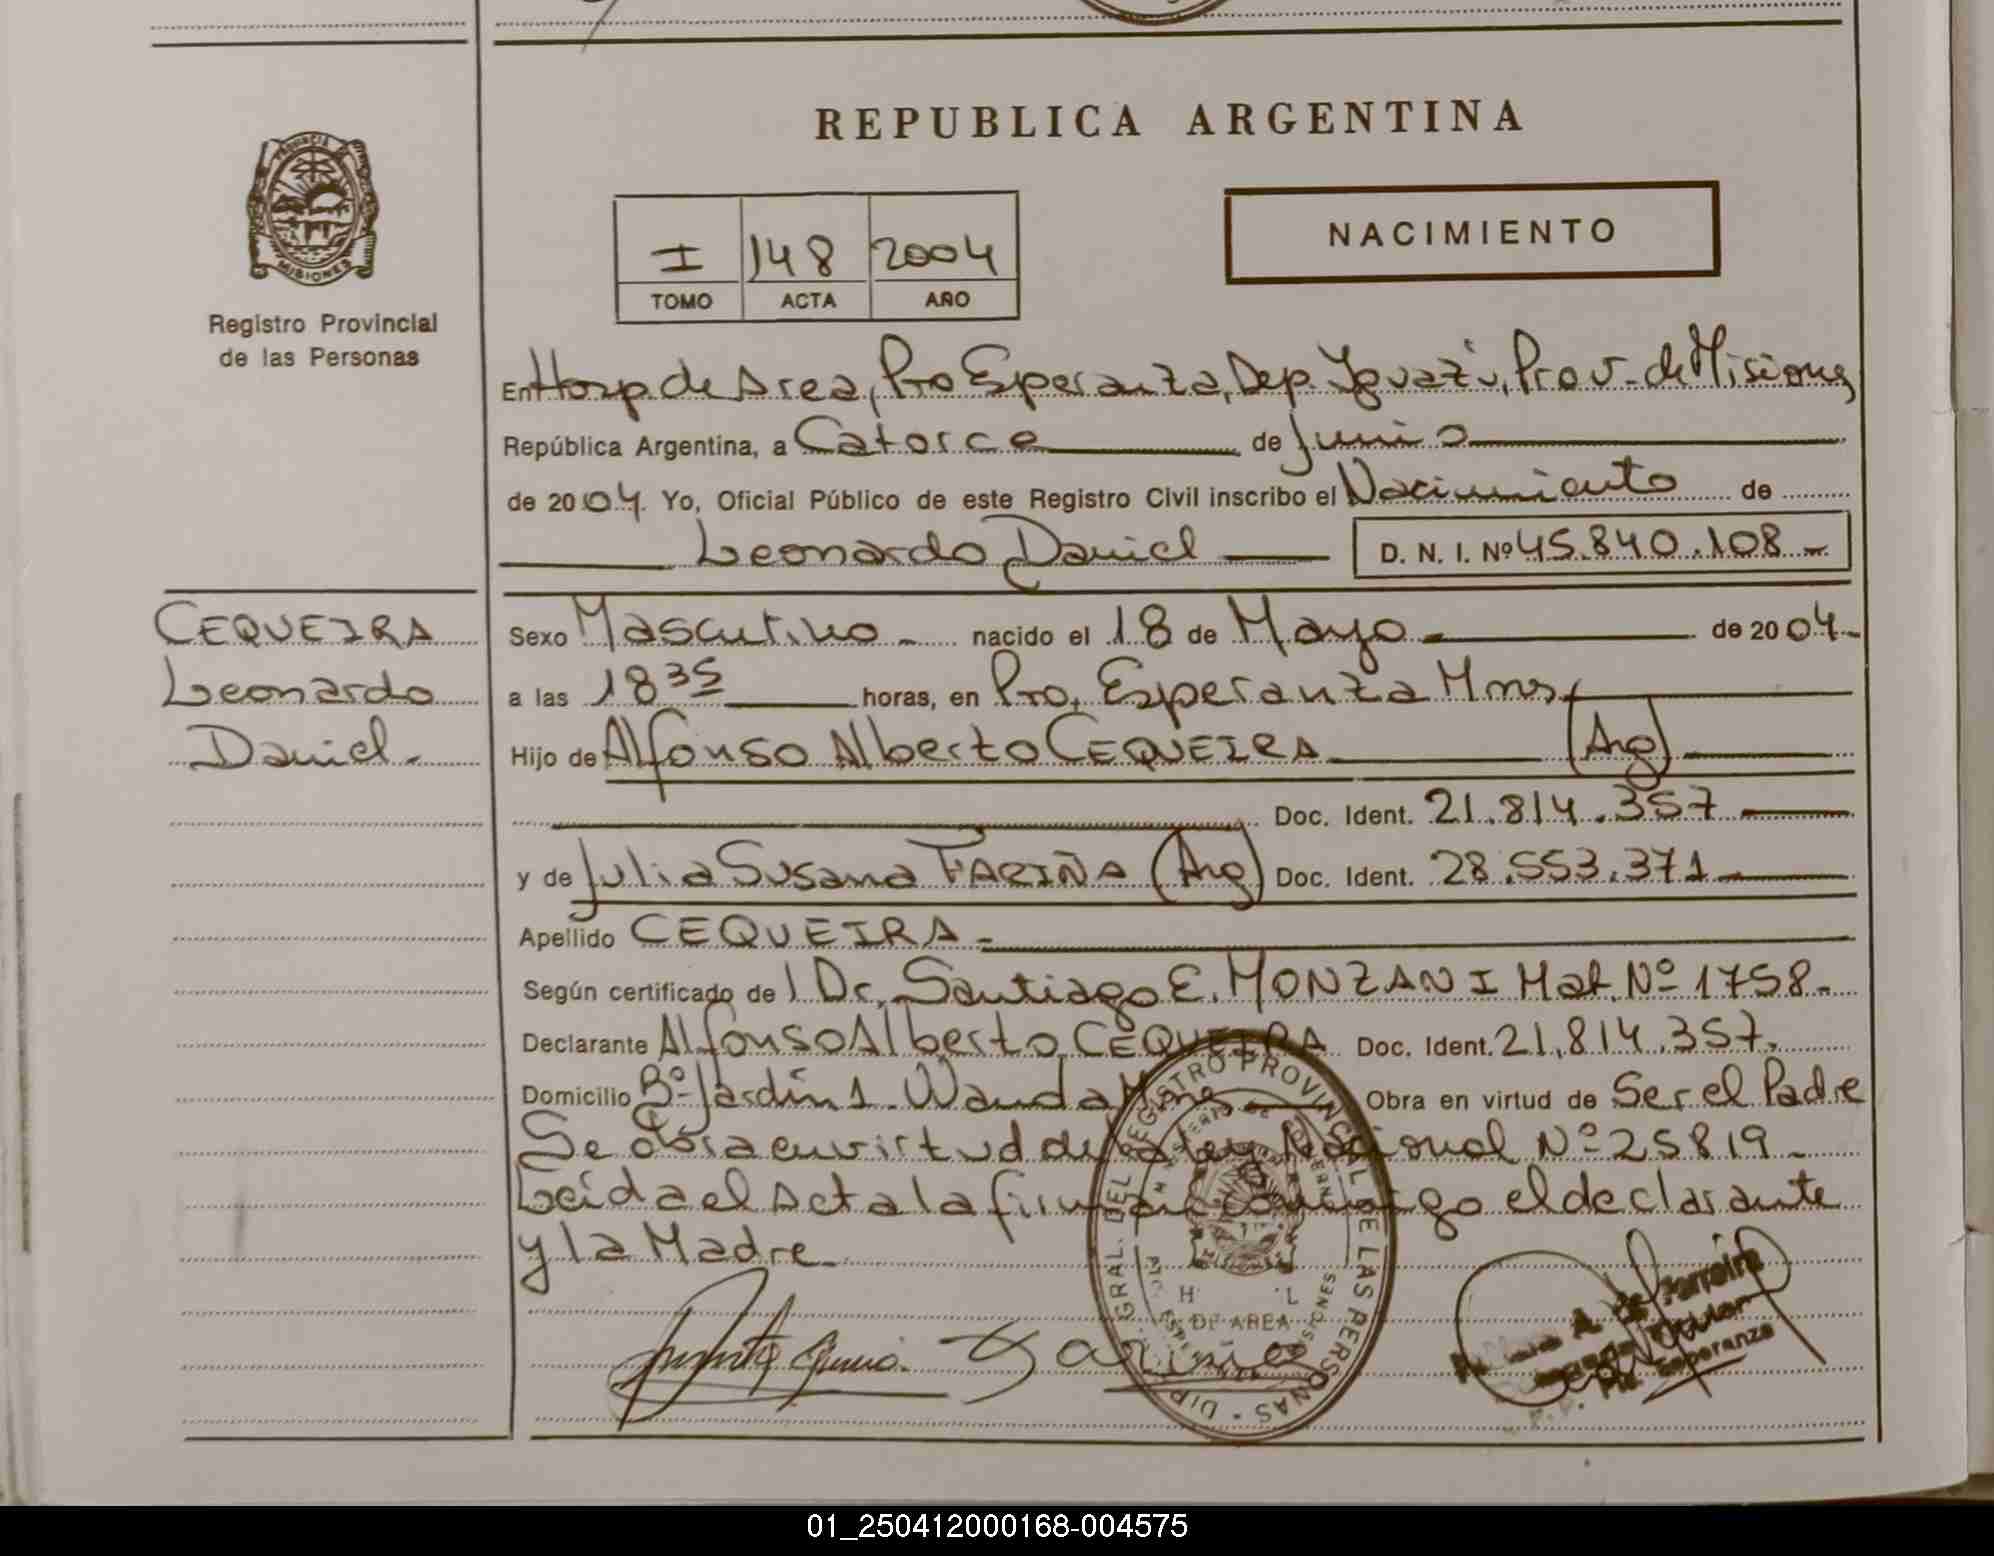 REPUBLICA ARGENTINA
PROVINCIA
MISIONES
Registro Provincial
de las Personas
I 148 2004
TOMO ACTA AÑO
NACIMIENTO
En Hosp. de Area, Pto Esperanza, Dep. Iguazú, Prov. de Misiones
República Argentina, a Catorce de Junio
de 2004. Yo, Oficial Público de este Registro Civil inscribo el Nacimiento de
Leonardo Daniel D. N. I. Nº 45.840.108.-
CEQUEIRA
Leonardo
Daniel.
Sexo Masculino.- nacido el 18 de Mayo de 2004.-
a las 18 35 horas, en Pto. Esperanza Mnes,
Hijo de Alfonso Alberto CEQUEIRA (Arg)
Doc. Ident. 21.814.357
y de Julia Susana FARIÑA (Arg) Doc. Ident. 28.553.371
Apellido CEQUEIRA.-
Según certificado de l Dr. Santiago E. MONZANI Mat. Nº 1758.-
Declarante Alfonso Alberto CEQUEIRA Doc. Ident. 21.814.357.
Domicilio Bº Jardín 1. Wanda Mnes Obra en virtud de Ser el Padre
Se obra en virtud de la Ley Nacional Nº 25819.-
Leida el Acta la firman conmigo el declarante
y la Madre.
DIR. GRAL. DEL REGISTRO PROVINCIAL DE LAS PERSONAS
DE AREA
MISIONES
A. de Ferreira
Titular
Pto. Esperanza
01_250412000168-004575